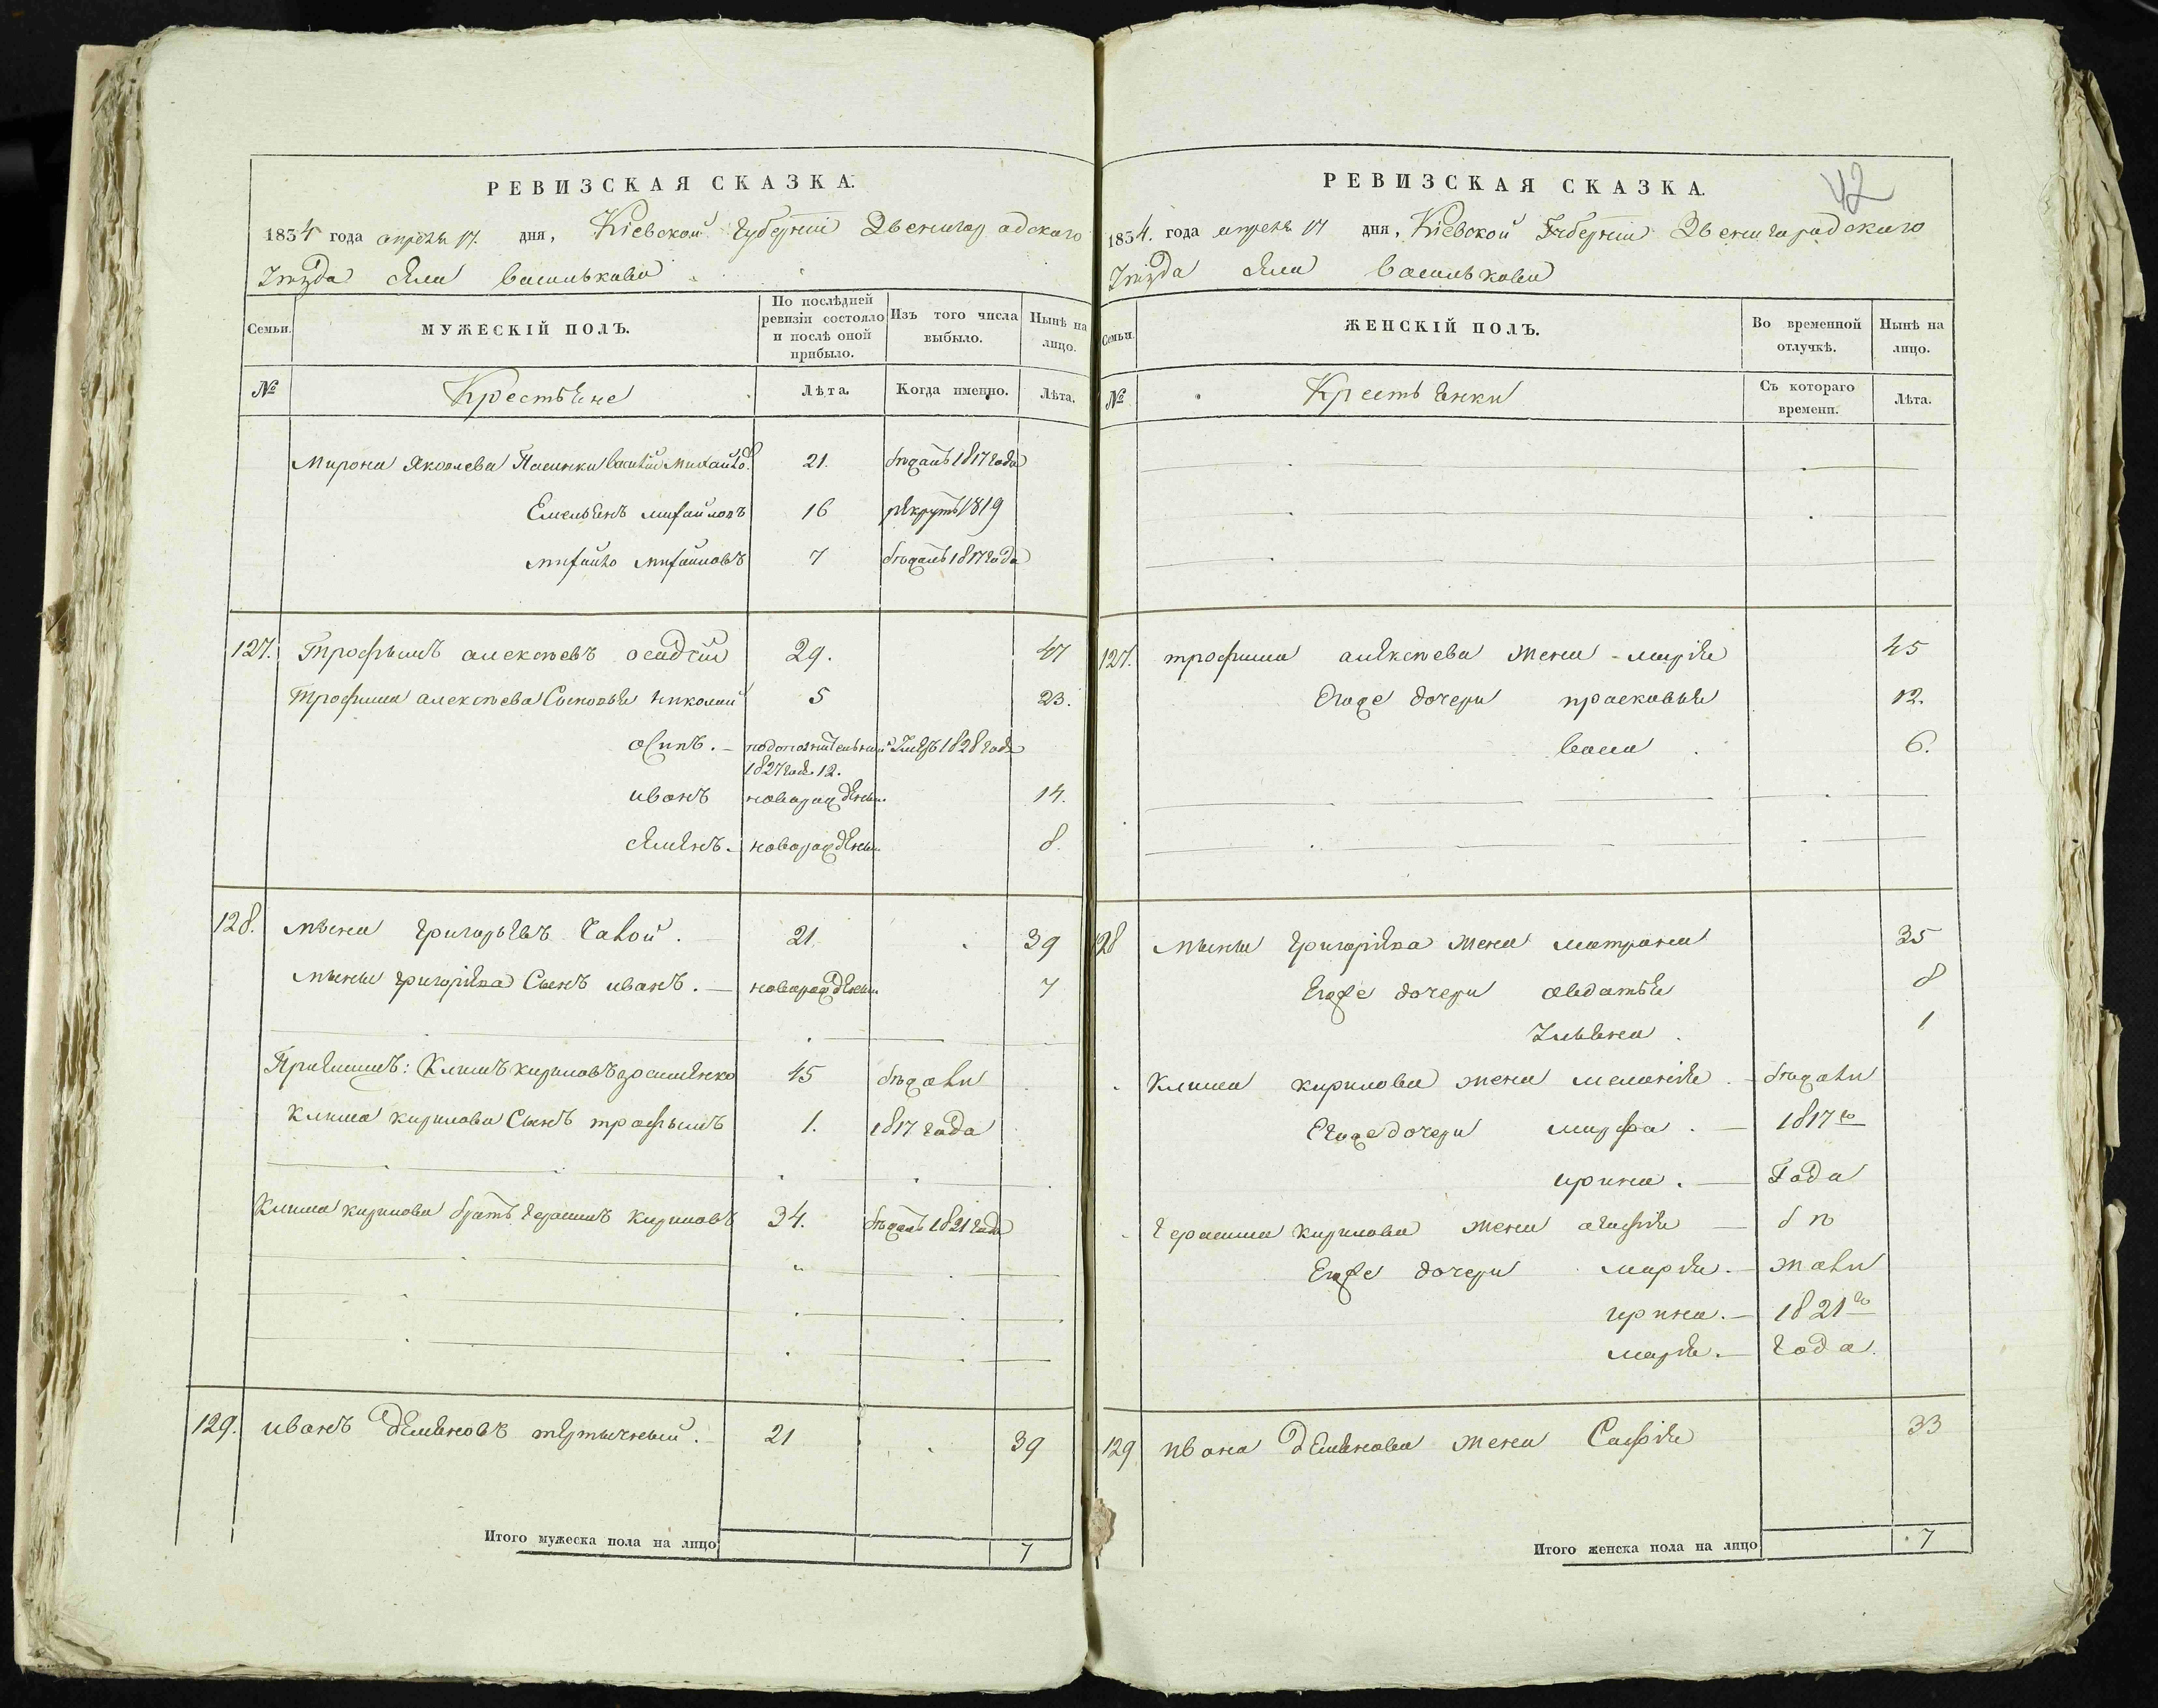 РЕВИЗСКАЯ СКАЗКА.
1834 года апреля 17. дня, Кіевской Губерніи Звенигородского
Уезда Села Василькова
Семьи.
МУЖЕСКІЙ ПОЛЪ.
По послѣдней ревизіи состояло и послѣ оной прибыло.
Изъ того числа выбыло.
Нынѣ на лицо.
№ Крестьяне Лѣта. Когда именно. Лѣта.
Мирона Яковлева Пасинки Василий Михайлов 21. бѣжалъ 1817 года
Емельянъ михайловъ 16 рекрутъ 1819
михайло михайловъ 7 бѣжалъ 1817 года
127. Трофымъ алексѣевъ осадчій 29. 47
Трофима алексѣева Сыновья николай 5 23.
осипъ. 1828 года
1827 года 12.
иванъ новорожденъ 14.
семенъ. новорожденъ 8.
128. мына григорьевъ 21. 39
мыны григоріева Сынъ иванъ. новорожденъ 7
Приемышъ: Климъ кириловъ 45 бѣжали
Клима кирилова Сынъ трофымъ 1. 1817 года
Клима кирилова братъ герасимъ кириловъ 34. бѣжалъ 1821 года
129. иванъ деменовъ тертычный. 21 39
Итого мужеска пола на лицо 7
42
РЕВИЗСКАЯ СКАЗКА.
1834. года апреля 17 дня, Кіевской Губерніи Звенигородского
Уезда Села Василькова
Семьи.
ЖЕНСКІЙ ПОЛЪ.
Во временной отлучкѣ.
Нынѣ на лицо.
№ Крестьянки Съ котораго времени. Лѣта.
127. трофима алексѣева жена марія 45
Егоже дочери прасковья 12.
васа 6.
128 мыны григоріева жена матрона 35
Егоже дочери авдотья 8
Ульяна. 1
Клима кирилова жена меланія. бѣжали
Егоже дочери марфа. 1817го
ирина. Года
герасима кирилова жена агафія бѣ
Егоже дочери марія. жали
ирина. 1821го
марія. года.
129 ивана деменова жена Софія 33
Итого женска пола на лицо 7